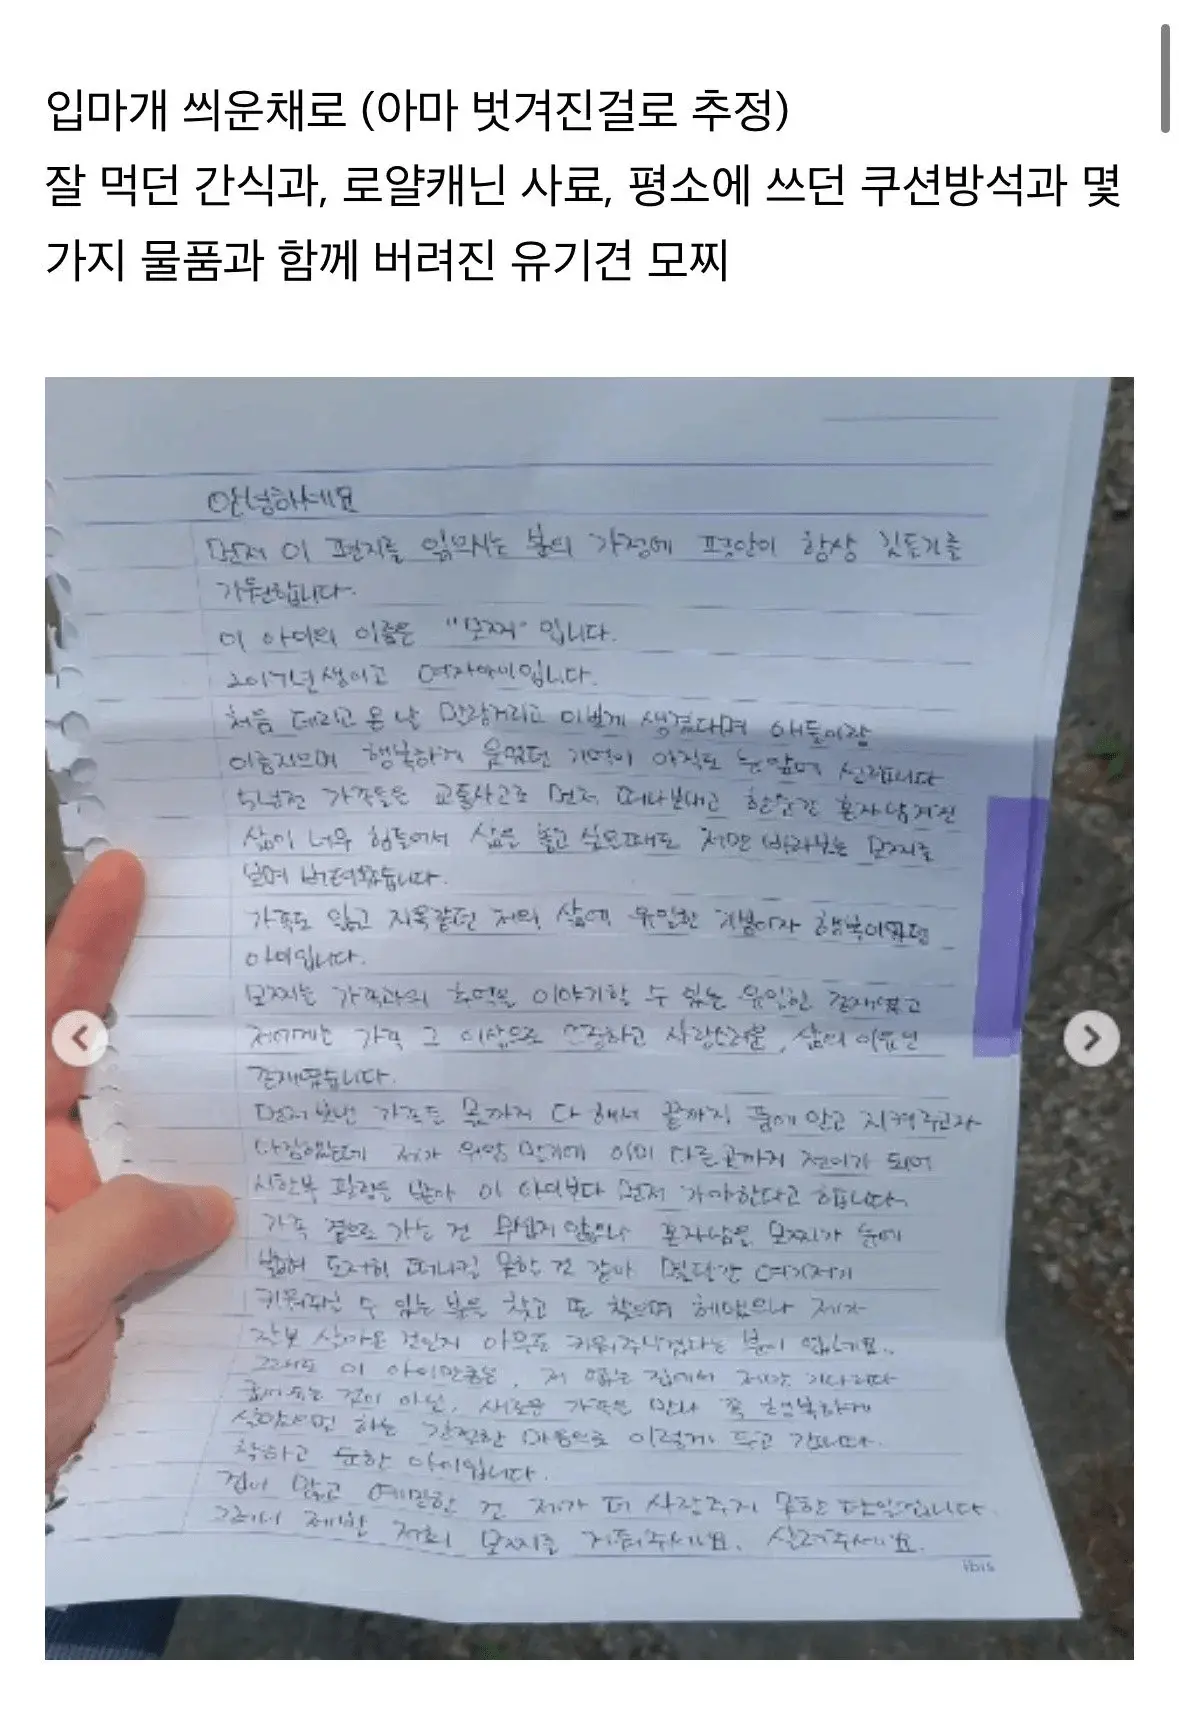 입마개 씌운채로 (아마 벗겨진걸로 추정)
잘 먹던 간식과, 로얄캐닌 사료, 평소에 쓰던 쿠션방석과 몇
가지 물품과 함께 버려진 유기견 모찌
안녕하세요
먼저 이 편지를 읽으시는 분의 가정에 평안이 항상 깃들기를
기원합니다.
이 아이의 이름은 "모찌" 입니다.
2017년생이고 여자아이입니다.
처음 데리고 온 날 말랑거리고 이쁘게 생겼다며 애들이랑
이름지으며 행복하게 웃었던 기억이 아직도 눈앞에 선합니다
5년전 가족들을 교통사고로 먼저 떠나보내고 한순간 혼자남겨진
삶이 너무 힘들어서 삶을 놓고 싶을때도 저만 바라보는 모찌를
보며 버텨왔습니다.
가족도 잃고 지옥같던 저의 삶에 유일한 희망이자 행복이였던
아이입니다.
모찌는 가족과의 추억을 이야기할 수 있는 유일한 존재였고
저에게는 가족 그 이상으로 소중하고 사랑스러운, 삶의 이유인
존재였습니다.
먼저보낸 가족들 몫까지 다 해서 끝까지 품에 안고 지켜주고자
다짐했는데 제가 위암 말기에 이미 다른곳까지 전이가 되어
시한부 판정을 받아 이 아이보다 먼저 가야한다고 합니다.
가족 곁으로 가는 건 무섭지 않으나 혼자남을 모찌가 눈에
밟혀 도저히 떠나질 못할 것 같아 몇달간 여기저기
키워주실 수 있는 분을 찾고 또 찾으며 헤맸으나 제가
잘못 살아온 것인지 아무도 키워주시겠다는 분이 없네요..
그래도 이 아이만큼은, 저 없는 집에서 저만 기다리다
굶어죽는 것이 아닌, 새로운 가족을 만나 꼭 행복하게
살았으면 하는 간절한 마음으로 이렇게 두고 갑니다.
착하고 순한 아이입니다.
겁이 많고 예민한 건 제가 더 사랑주지 못한 탓입니다
그러니 제발 저희 모찌를 거둬주세요. 살려주세요.
ibis